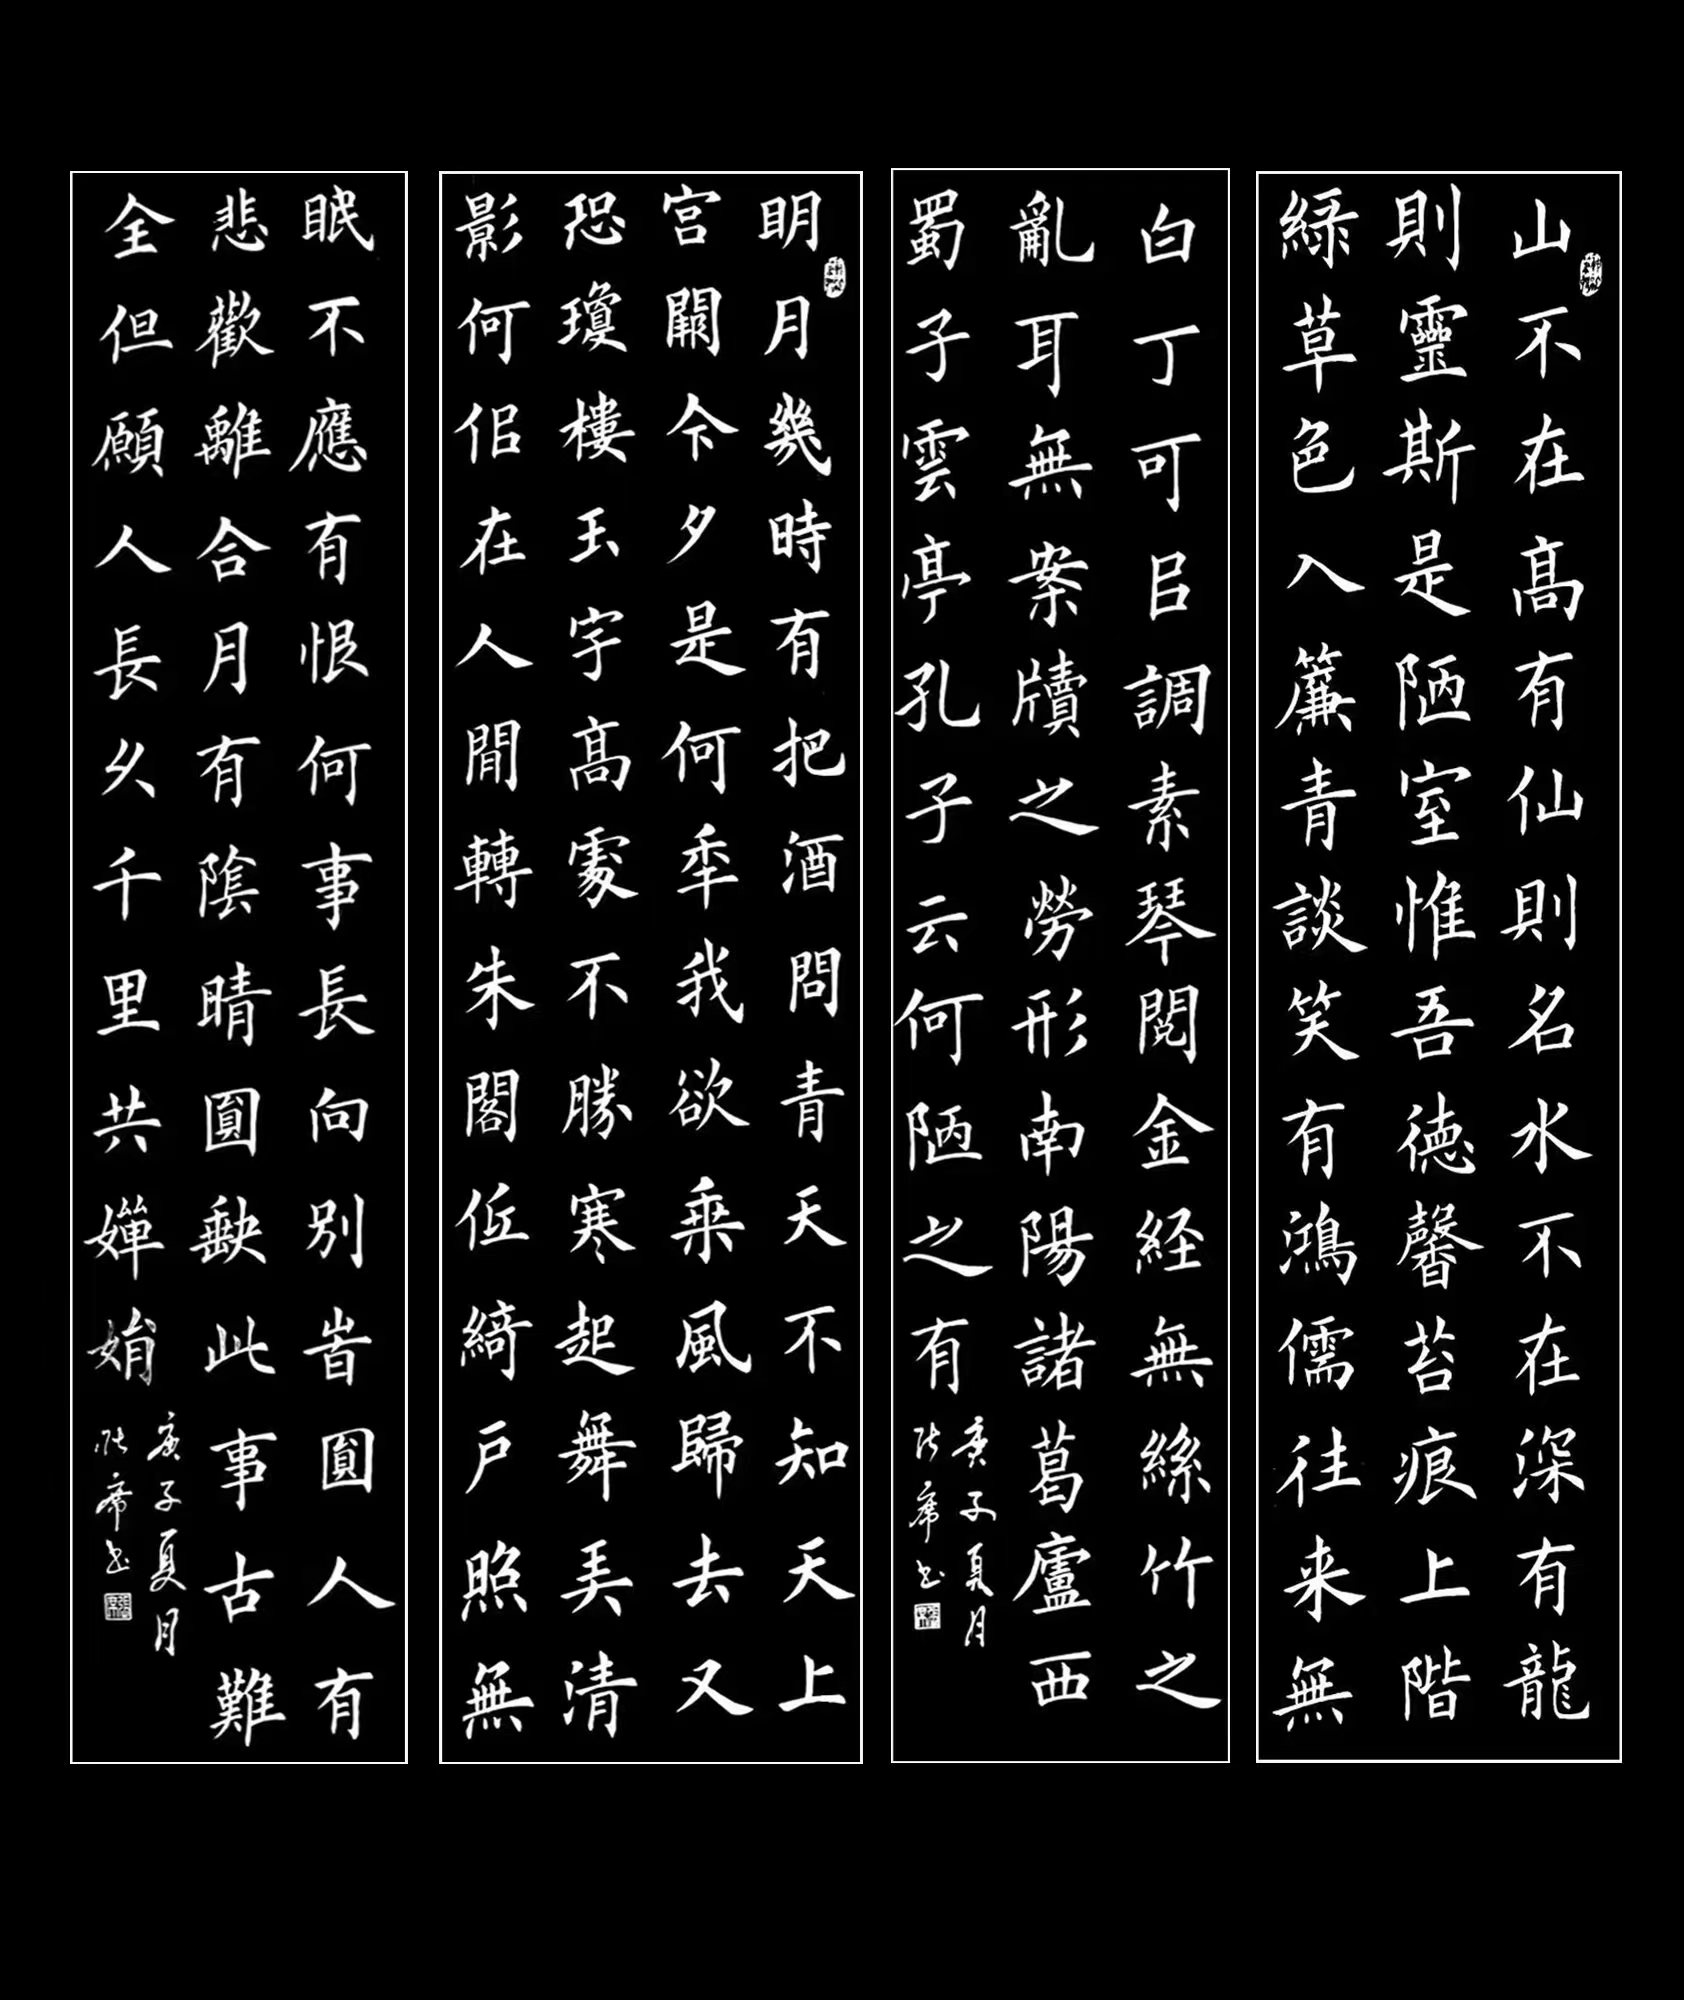 山不在高有仙則名水不在深有龍
則靈斯是陋室惟吾德馨苔痕上階
綠草色入簾青談笑有鴻儒往来無
白丁可㠯調素琴閱金経無絲竹之
亂耳無案牘之勞形南陽諸葛廬西
蜀子雲亭孔子云何陋之有
庚子夏月
明月幾時有把酒問青天不知天上
宮闕今夕是何年我欲乗風歸去又
恐瓊樓玉宇高處不勝寒起舞弄清
影何佀在人間轉朱閣低綺戶照無
眠不應有恨何事長向別旹圓人有
悲歡離合月有陰晴圓缺此事古難
全但願人長久千里共嬋娟
庚子夏月